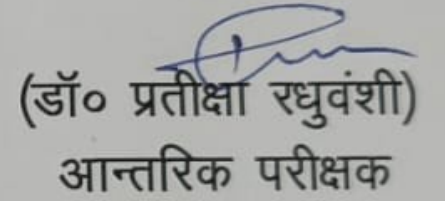 (डॉ० प्रतीक्षा रधुवंशी)
आन्तरिक परीक्षक